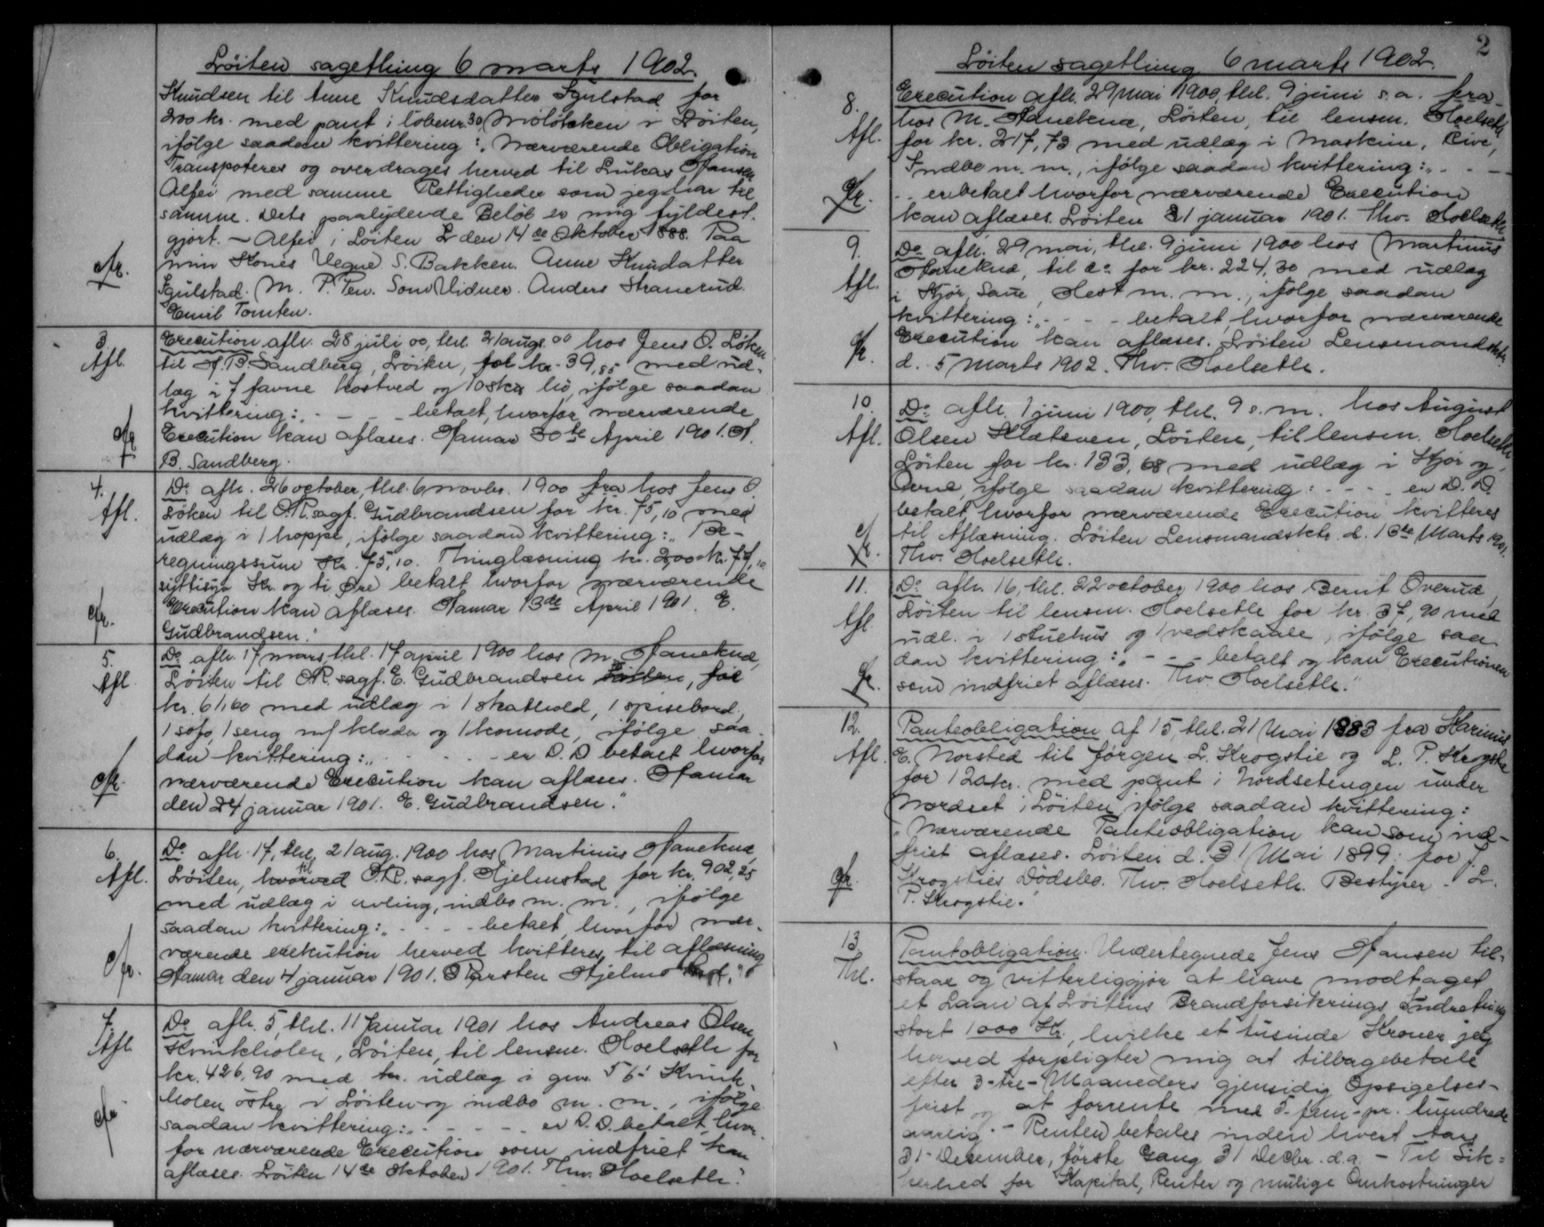 Löiten sagething 6 marts 1902.
Knudsen til Anne Knudsdatter Gulstad for
200 kr. med pant i löbenr. 30 i Löiten,
ifölge saadan kvittering: "Nærværende Obligation
Transporteres og overdrages herved til Lukas Hansen
Alfei med samme Rettigheder som jeg har til
samme. Dets paalydende Belöb er mig fyldest-
gjort. – Alfei i Löiten L den 14de Oktober 1888. Paa
cfr. min Kones Vegne S. Bakken. Anne Knudatter
Gulstad. M. P. Pen. Som Vidner. Anders Stranerud.
Emil Tomten.
3. Execution afh. 28 juli 00, thl. 21 aug. 00 hos Jens O. Löken
Afl. til H. B. Sandberg, Löiten, for kr. 39,85 med ud-
læg i 7 favne kostved og hö, ifölge saadan
kvittering: - - - betalt, hvorfor nærværende
cfr Execution kan aflæses. Hamar 30te April 1901. H.
B. Sandberg.
4. Do afh. 26 october, thl. 6 novbr. 1900 fra hos Jens O.
Afl. Löken til OR.sagf. Gudbrandsen for kr. 75,10 med
udlæg i 1 hoppe, ifölge saadan kvittering: "Be-
regningssum Kr. 75,10. Thinglæsning kr. 2,00 kr. 77,10
syttisyv Kr. og ti Öre betalt hvorfor nærværende
cfr. Execution kan aflæses. Hamar 13de April 1901. E.
Gudbrandsen."
5. Do afh. 17 mars, thl. 17 april 1900 hos M. Hanekna,
Afl. Löiten til OR.sagf. E. Gudbrandsen Löiten, for
kr. 61,60 med udlæg i 1 skathold, 1 spisebord,
1 sofa, 1 seng m/ klæder og 1 komode, ifölge saa-
dan kvittering: " - - - er D.D betalt hvorfor
cfr. nærværende Execution kan aflæses. Hamar
den 24 januar 1901. E. Gudbrandsen."
6. Do afh. 17, thl. 21 aug. 1900 hos Martinus Hanekna,
Afl. Löiten, hvorved til O.R.sagf. Hjelmstad for kr. 902,25
med udlæg i avling, indbo m. m., ifölge
saadan kvittering: " - - - betalt, hvorfor nær-
værende exekution herved kvitteres til aflæsning
cfr. Hamar den 4 januar 1901. Karsten Hjelmstad."
7. Do afh. 5, thl. 11 Januar 1901 hos Andreas Olsen
Afl Kvinkholen, Löiten, til lensm. Hoelseth for
kr. 426,90 med kr. udlæg i gnr. 56 Kvink-
cfr holen östre i Löiten og indbo m. m., ifölge
saadan kvittering: " - - - er D.D. betalt, hvor-
for nærværende Execution som indfriet kan
aflæses. Löiten 14de Oktober 1901. Thv. Hoelseth."
2
Löiten sagething 6 marts 1902.
8. Execution afh. 29 mai 1900, thl. 9 juni s.a. fra
Afl. hos M. Hanekna, Löiten, til lensm. Hoelseth
for kr. 217,73 med udlæg i Maskine,
Indbo m. m., ifölge saadan kvittering: " - - -
cfr. - - er betalt hvorfor nærværende Execution
kan aflæses. Löiten 31 januar 1901. Thv. Hoelseth
9. Do afh. 29 mai, thl. 9 juni 1900 hos Martinus
Afl. Hanekna, til do for kr. 224,30 med udlæg
i Kjör, Saue, Hest m. m., ifölge saadan
kvittering: " - - - betalt, hvorfor nærværende
cfr. Execution kan aflæses. Löiten Lensmandsktr.
d. 5 Marts 1902. Thv. Hoelseth.
10. Do afh. 1 juni 1900, thl. 9 s.m. hos August
Afl. Olsen Klætsven, Löiten, til lensm. Hoelseth
Löiten for kr. 133,68 med udlæg i Kjör og
Ovne, ifölge saadan kvittering: - - - er D.D.
betalt hvorfor nærværende Execution kvitteres
cfr. til Aflæsning. Löiten Lensmandsktr. d. 16de Marts 1901.
Thv. Hoelseth.
11. Do afh. 16, thl. 22 october 1900 hos Bernt Overud,
Afl Löiten til lensm. Hoelseth for kr. 37,90 med
udl. i 1 stuehus og 1 vedskaale, ifölge saa-
dan kvittering: " - - betalt og kan Executionen
cfr. som indfriet aflæses. Thv. Hoelseth."
12. Panteobligation af 15, thl. 21 Mai 1883 fra Karinus
Afl. E. Norsted til Jörgen L. Krogstie og L. P. Krogstie
for 120 kr. med pant i Nordsetengen under
Nordset i Löiten ifölge saadan kvittering:
"Nærværende Panteobligation kan som ind-
friet aflæses. Löiten d. 31 Mai 1899 for J.
cfr. Krogsties Dödsbo. Thv. Hoelseth. Bestyrer. L.
P. Krogstie.
13. Pantobligation. Undertegnede Jens Hansen til-
Thl. staar og vitterliggjör at have modtaget
et Laan af Löitens Brandforsikrings Indretning
stort 1000 Kr., hvilke et tusinde Kroner jeg
herved forpligter mig at tilbagebetale
efter 3-tre-Maaneders gjensidig Opsigelses-
frist og at forrente med 5-fem-pr. hundrede
aarlig. – Renten betales inden hvert Aars
31-December, förste Gang 31 Decbr. d.a. – Til Sik-
kerhed for Kapital, Renter og mulige Omkostninger